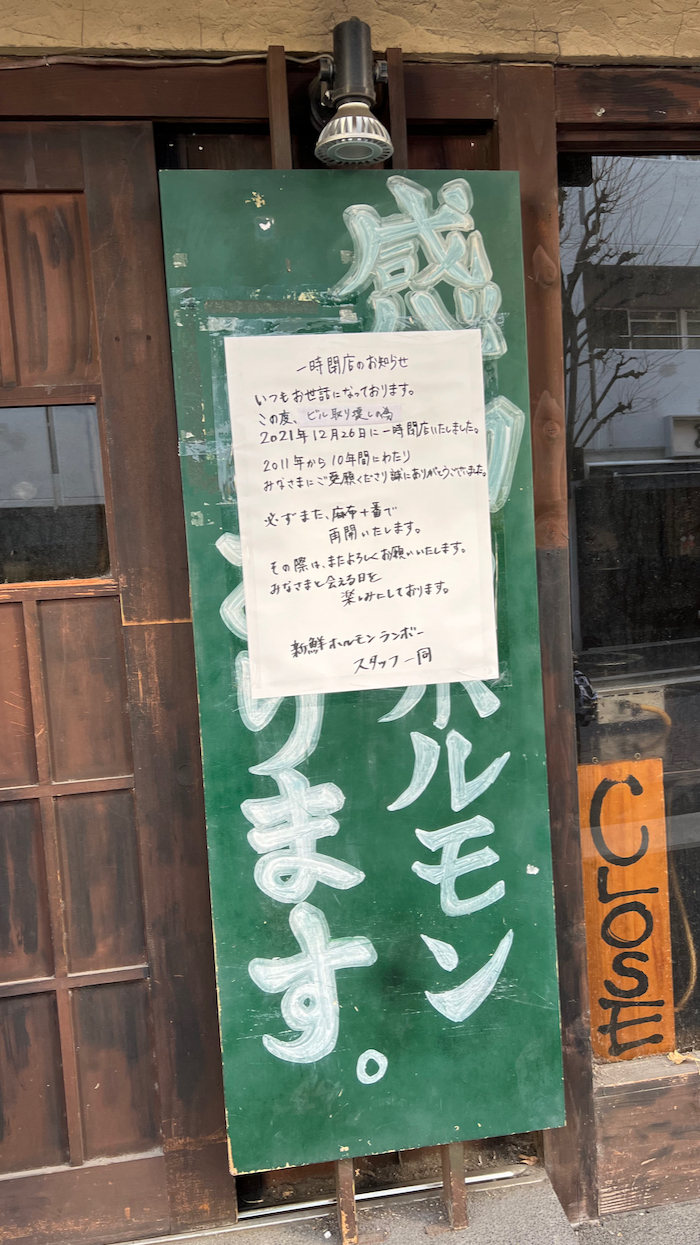 一時閉店のお知らせ
いつもお世話になっております。
この度、ビル取り壊しの為
2021年12月26日に一時閉店いたしました。
2011年から10年間にわたり
みなさまにご愛顧くださり誠にありがとうございました。
必ずまた、麻布十番で
再開いたします。
その際は、またよろしくお願いいたします。
みなさまと会える日を
楽しみにしております。
新鮮ホルモンランボー
スタッフ一同
感
ホルモン
ります。
CLOSE